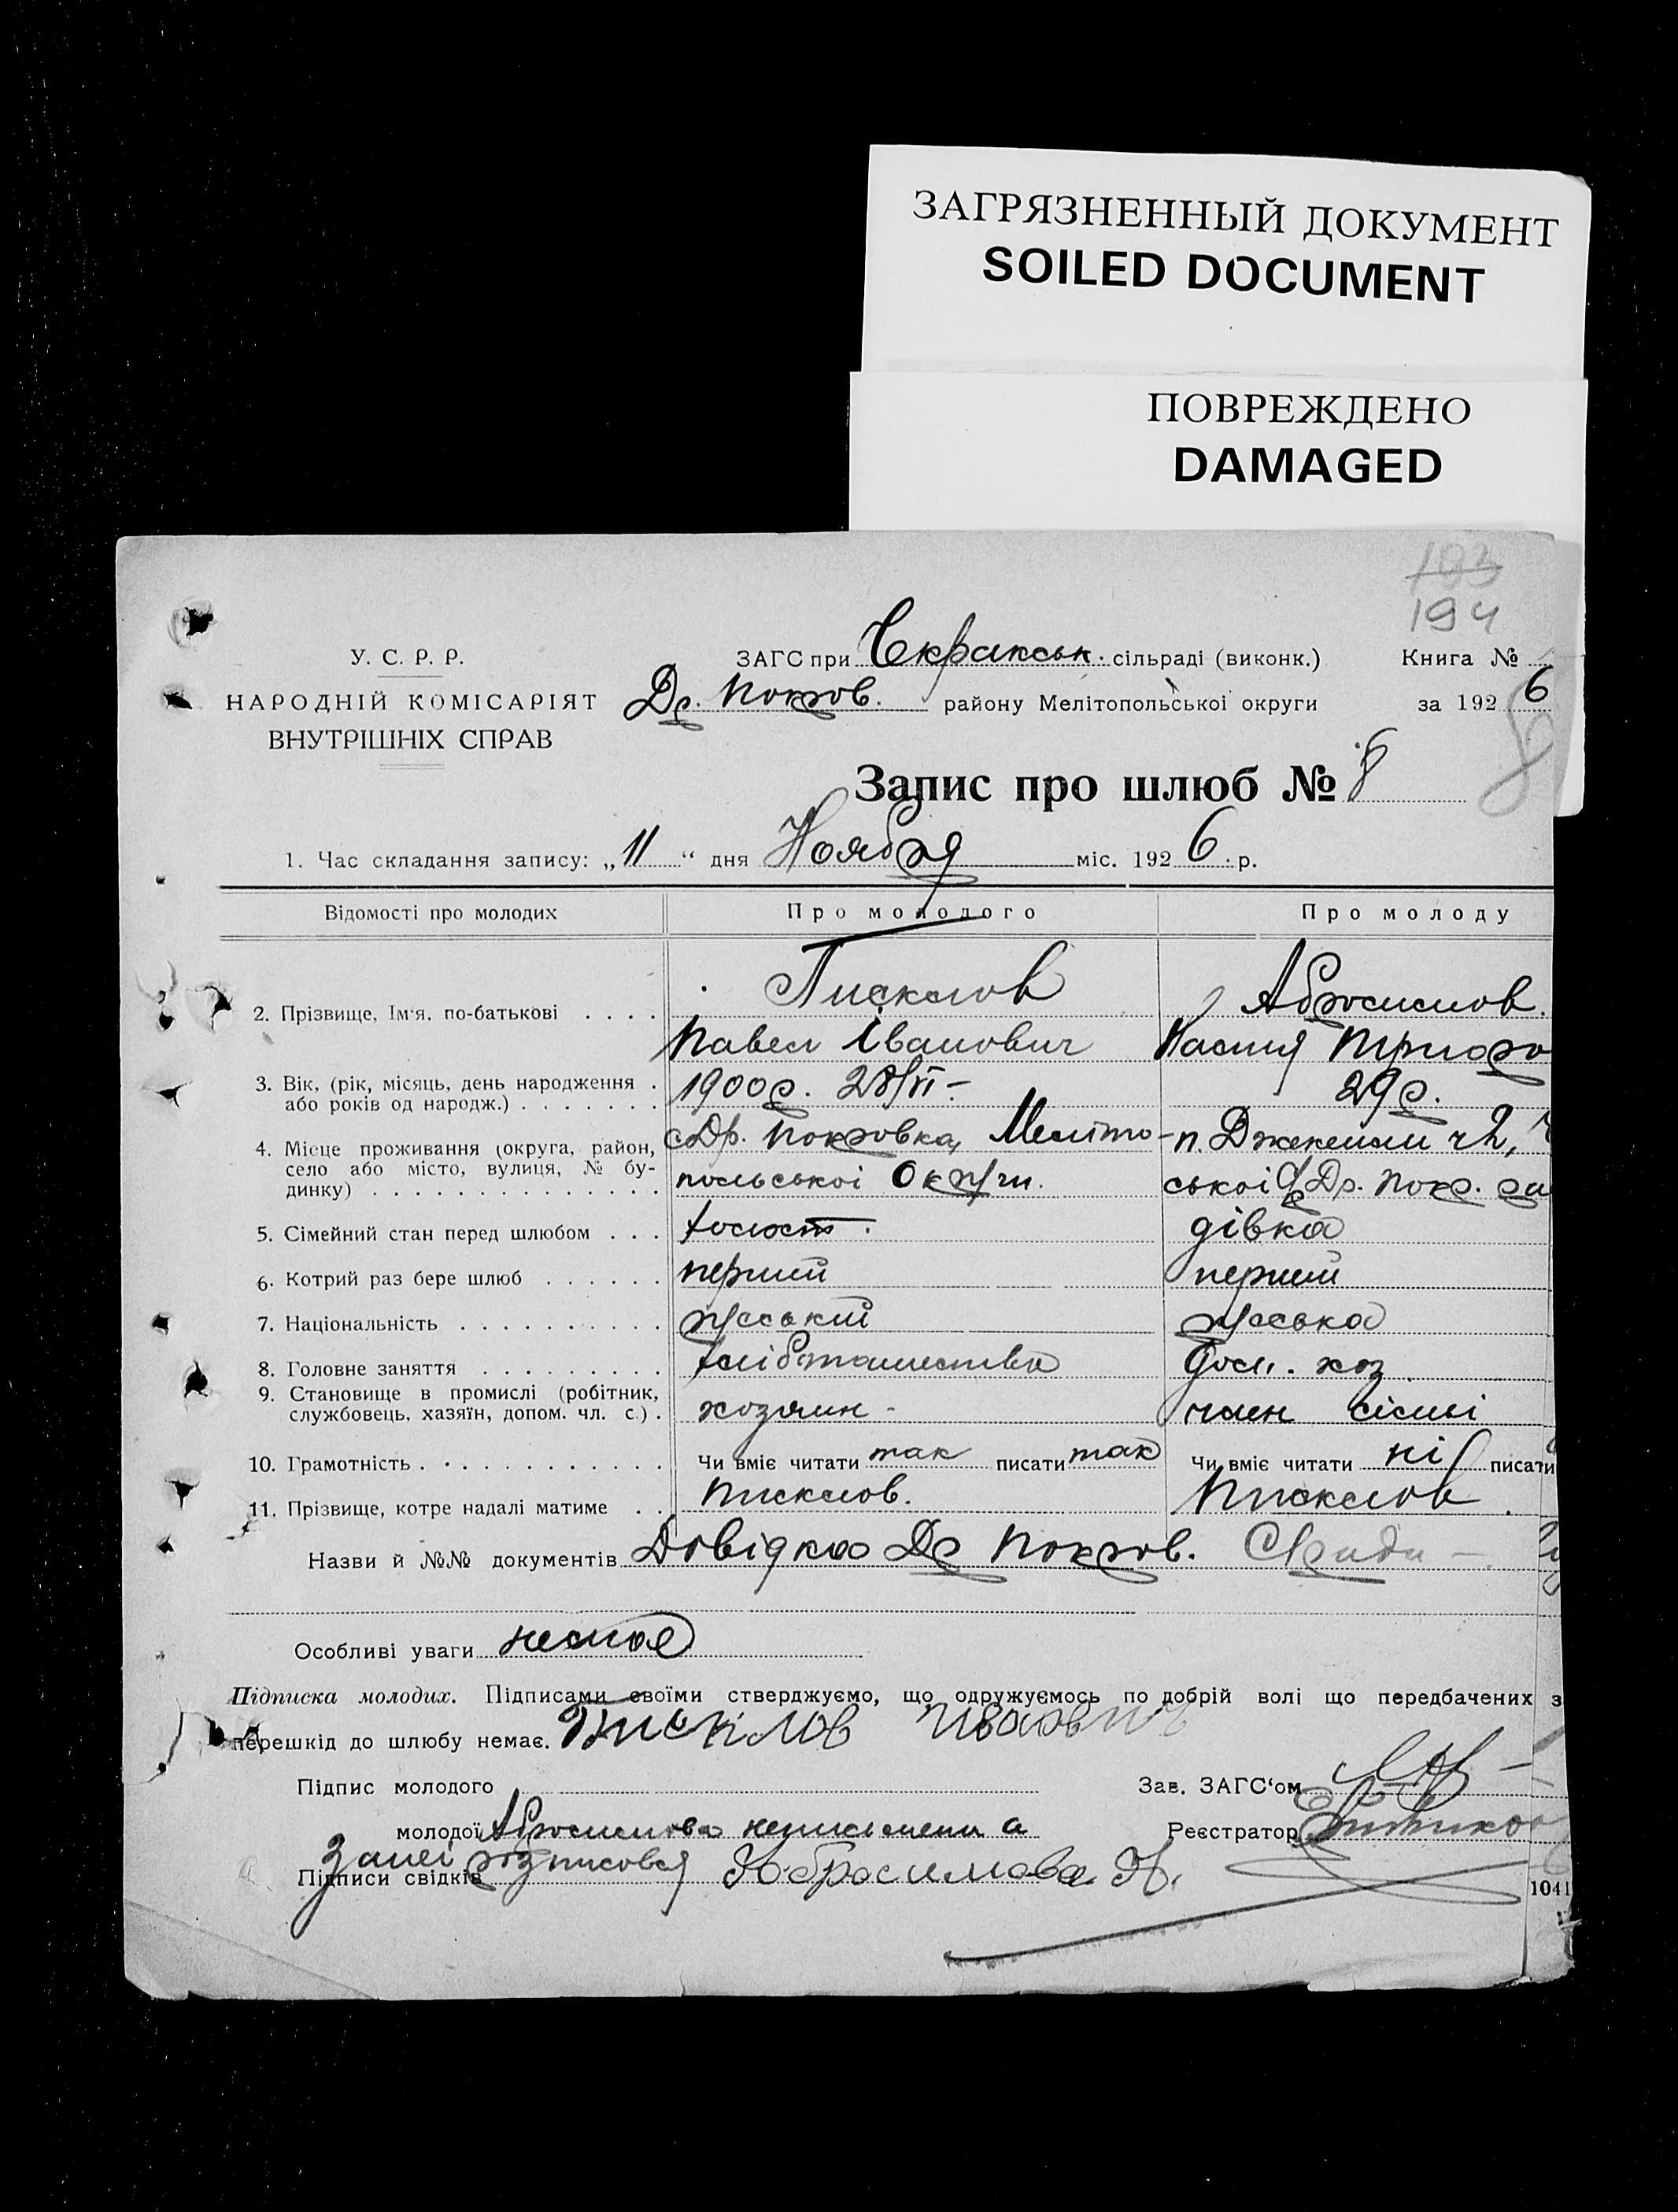 ЗАГРЯЗНЕННЫЙ ДОКУМЕНТ
SOILED DOCUMENT
ПОВРЕЖДЕНО
DAMAGED
193
194
У. С. Р. Р.
НАРОДНІЙ КОМІСАРІЯТ
ВНУТРІШНІХ СПРАВ
ЗАГС при Чекракськ. сільраді (виконк.) Книга №
Др. Покров. району Мелітопольської округи за 1926
Запис про шлюб № 8
1. Час складання запису: „11“ дня Ноября міс. 1926 р.
Відомості про молодих Про молодого Про молоду
2. Прізвище, Ім'я, по-батькові . . . . Пискмов Абросимов.
Павел Іванович Настя
3. Вік, (рік, місяць, день народження . 1900р. 28/VI – 29р.
або років од народж.) . . . . . . .
4. Місце проживання (округа, район, с Др. Покровка, Меліто- п.
село або місто, вулиця, № бу- польської Округи. ської Др. Покр.
динку) . . . . . . . . . . . . . . .
5. Сімейний стан перед шлюбом . . . холост. дівка
6. Котрий раз бере шлюб . . . . . . перший перший
7. Національність . . . . . . . . . . руський руська
8. Головне заняття . . . . . . . . . хліботашество дом. хоз
9. Становище в промислі (робітник,
службовець, хазяїн, допом. чл. с.) . хозяин - член сімьі
10. Грамотність . . . . . . . . . . . . Чи вміє читати так писати так Чи вміє читати ні писати
11. Прізвище, котре надалі матиме . . Пискмов. Пискмов
Назви й №№ документів Довідка Др Покров.
Особливі уваги немає
Підписка молодих. Підписами своїми стверджуємо, що одружуємось по добрій волі що передбачених з
перешкід до шлюбу немає. Пискмов Иванвич
Підпис молодого Зав. ЗАГС‘ом
молодої Абросимова неписьменна Реєстратор
за неї розписовся Абросимова Н.
Підписи свідків
1041